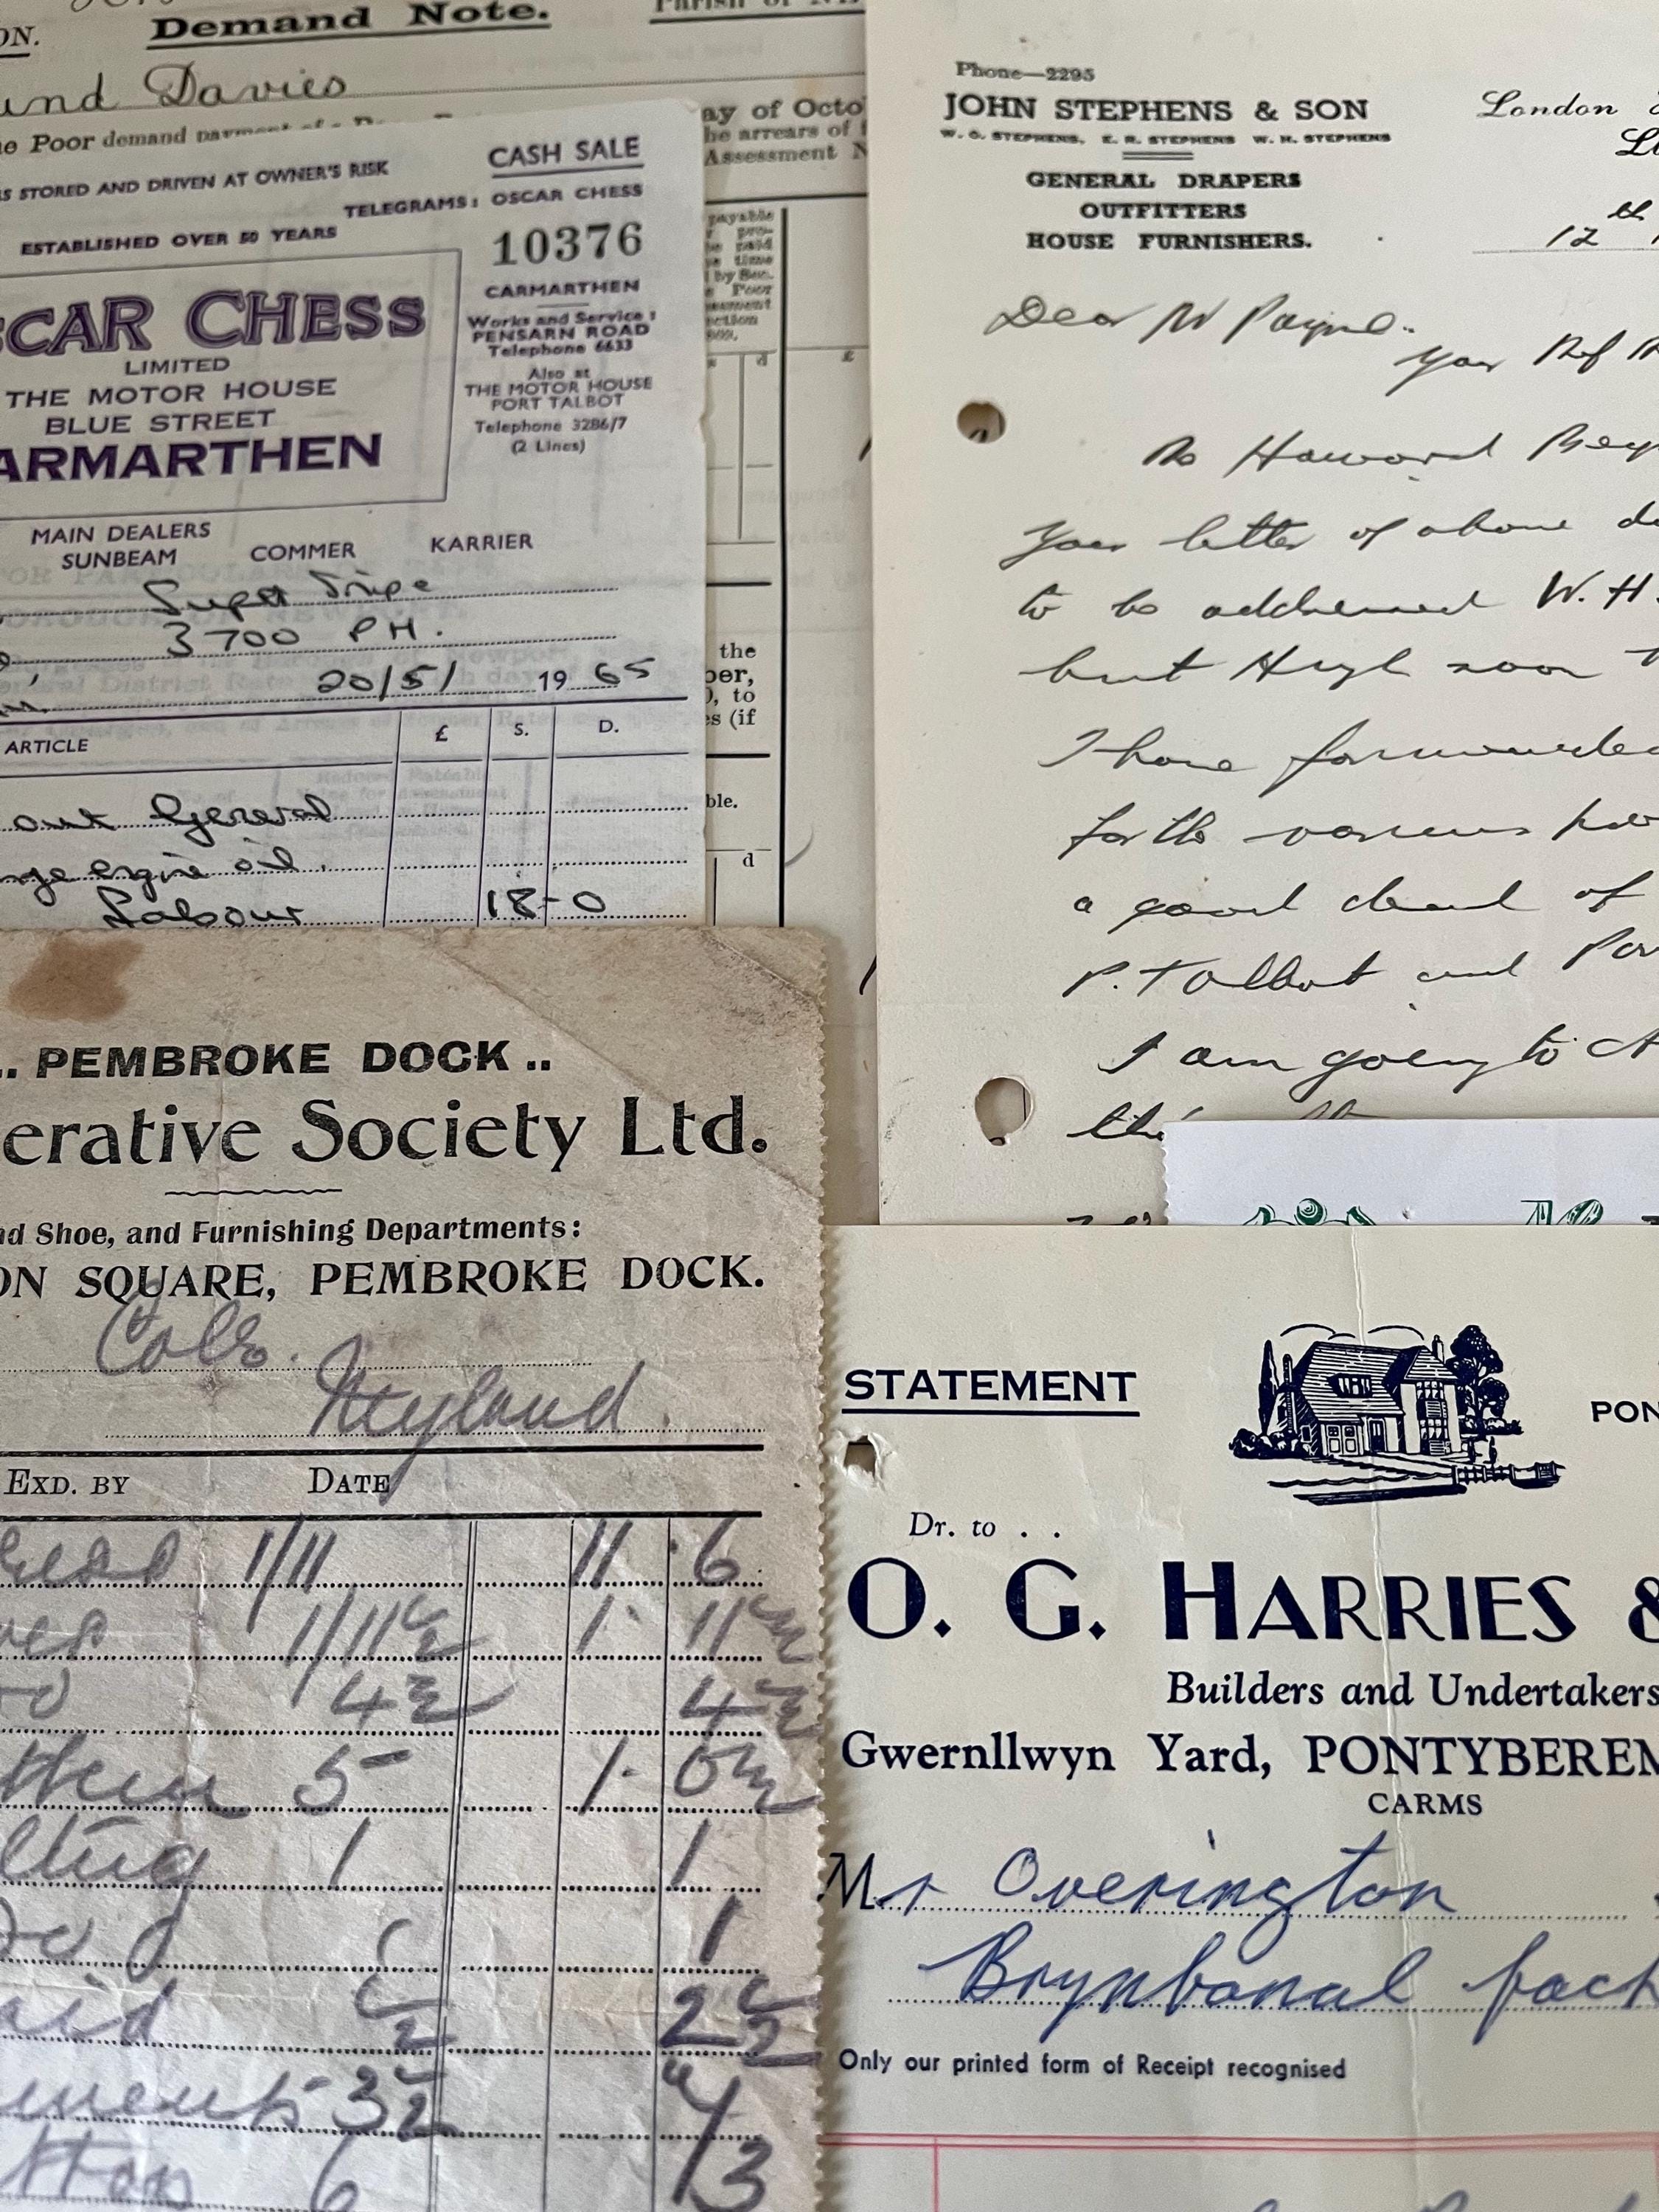 Demand Note.
ON.
und Davies
Poor demand payment of a
ay of Octo
he arrears of
Assessment N
S STORED AND DRIVEN AT OWNER'S RISK
CASH SALE
TELEGRAMS: OSCAR CHESS
ESTABLISHED OVER 50 YEARS
10376
SCAR CHESS
LIMITED
THE MOTOR HOUSE
BLUE STREET
ARMARTHEN
CARMARTHEN
Works and Service:
PENSARN ROAD
Telephone 6633
Also at
THE MOTOR HOUSE
PORT TALBOT
Telephone 3286/7
(2 Lines)
MAIN DEALERS
SUNBEAM COMMER KARRIER
Super Snipe
3700 PH.
20/5/ 19 65
ARTICLE £ S. D.
out General
nge engine oil.
Labour 18-0
payable
pro-
paid
time
by Sec.
Poor
d £
the
ber,
), to
es (if
ble.
d
Phone—2295
JOHN STEPHENS & SON
W. O. STEPHENS, E. R. STEPHENS W. H. STEPHENS
GENERAL DRAPERS
OUTFITTERS
HOUSE FURNISHERS.
London &
12th
Dear Mr Payne.
your Ref
Howard
your letter of above da
to be addressed W. H.
but soon
I have forwarded
for the various
a good deal of
P. Talbot and Por
I am going to
.. PEMBROKE DOCK ..
erative Society Ltd.
nd Shoe, and Furnishing Departments:
ON SQUARE, PEMBROKE DOCK.
Cole.
Neyland
EXD. BY DATE
1/11 11 . 6
1/11½ 1. 11½
4½ 4½
5 1. 0½
1 1
1
2½
3½
6 /3
STATEMENT
PON
Dr. to . .
O. G. HARRIES &
Builders and Undertakers
Gwernllwyn Yard, PONTYBEREM
CARMS
Mr Overington
Brynbanal fach
Only our printed form of Receipt recognised